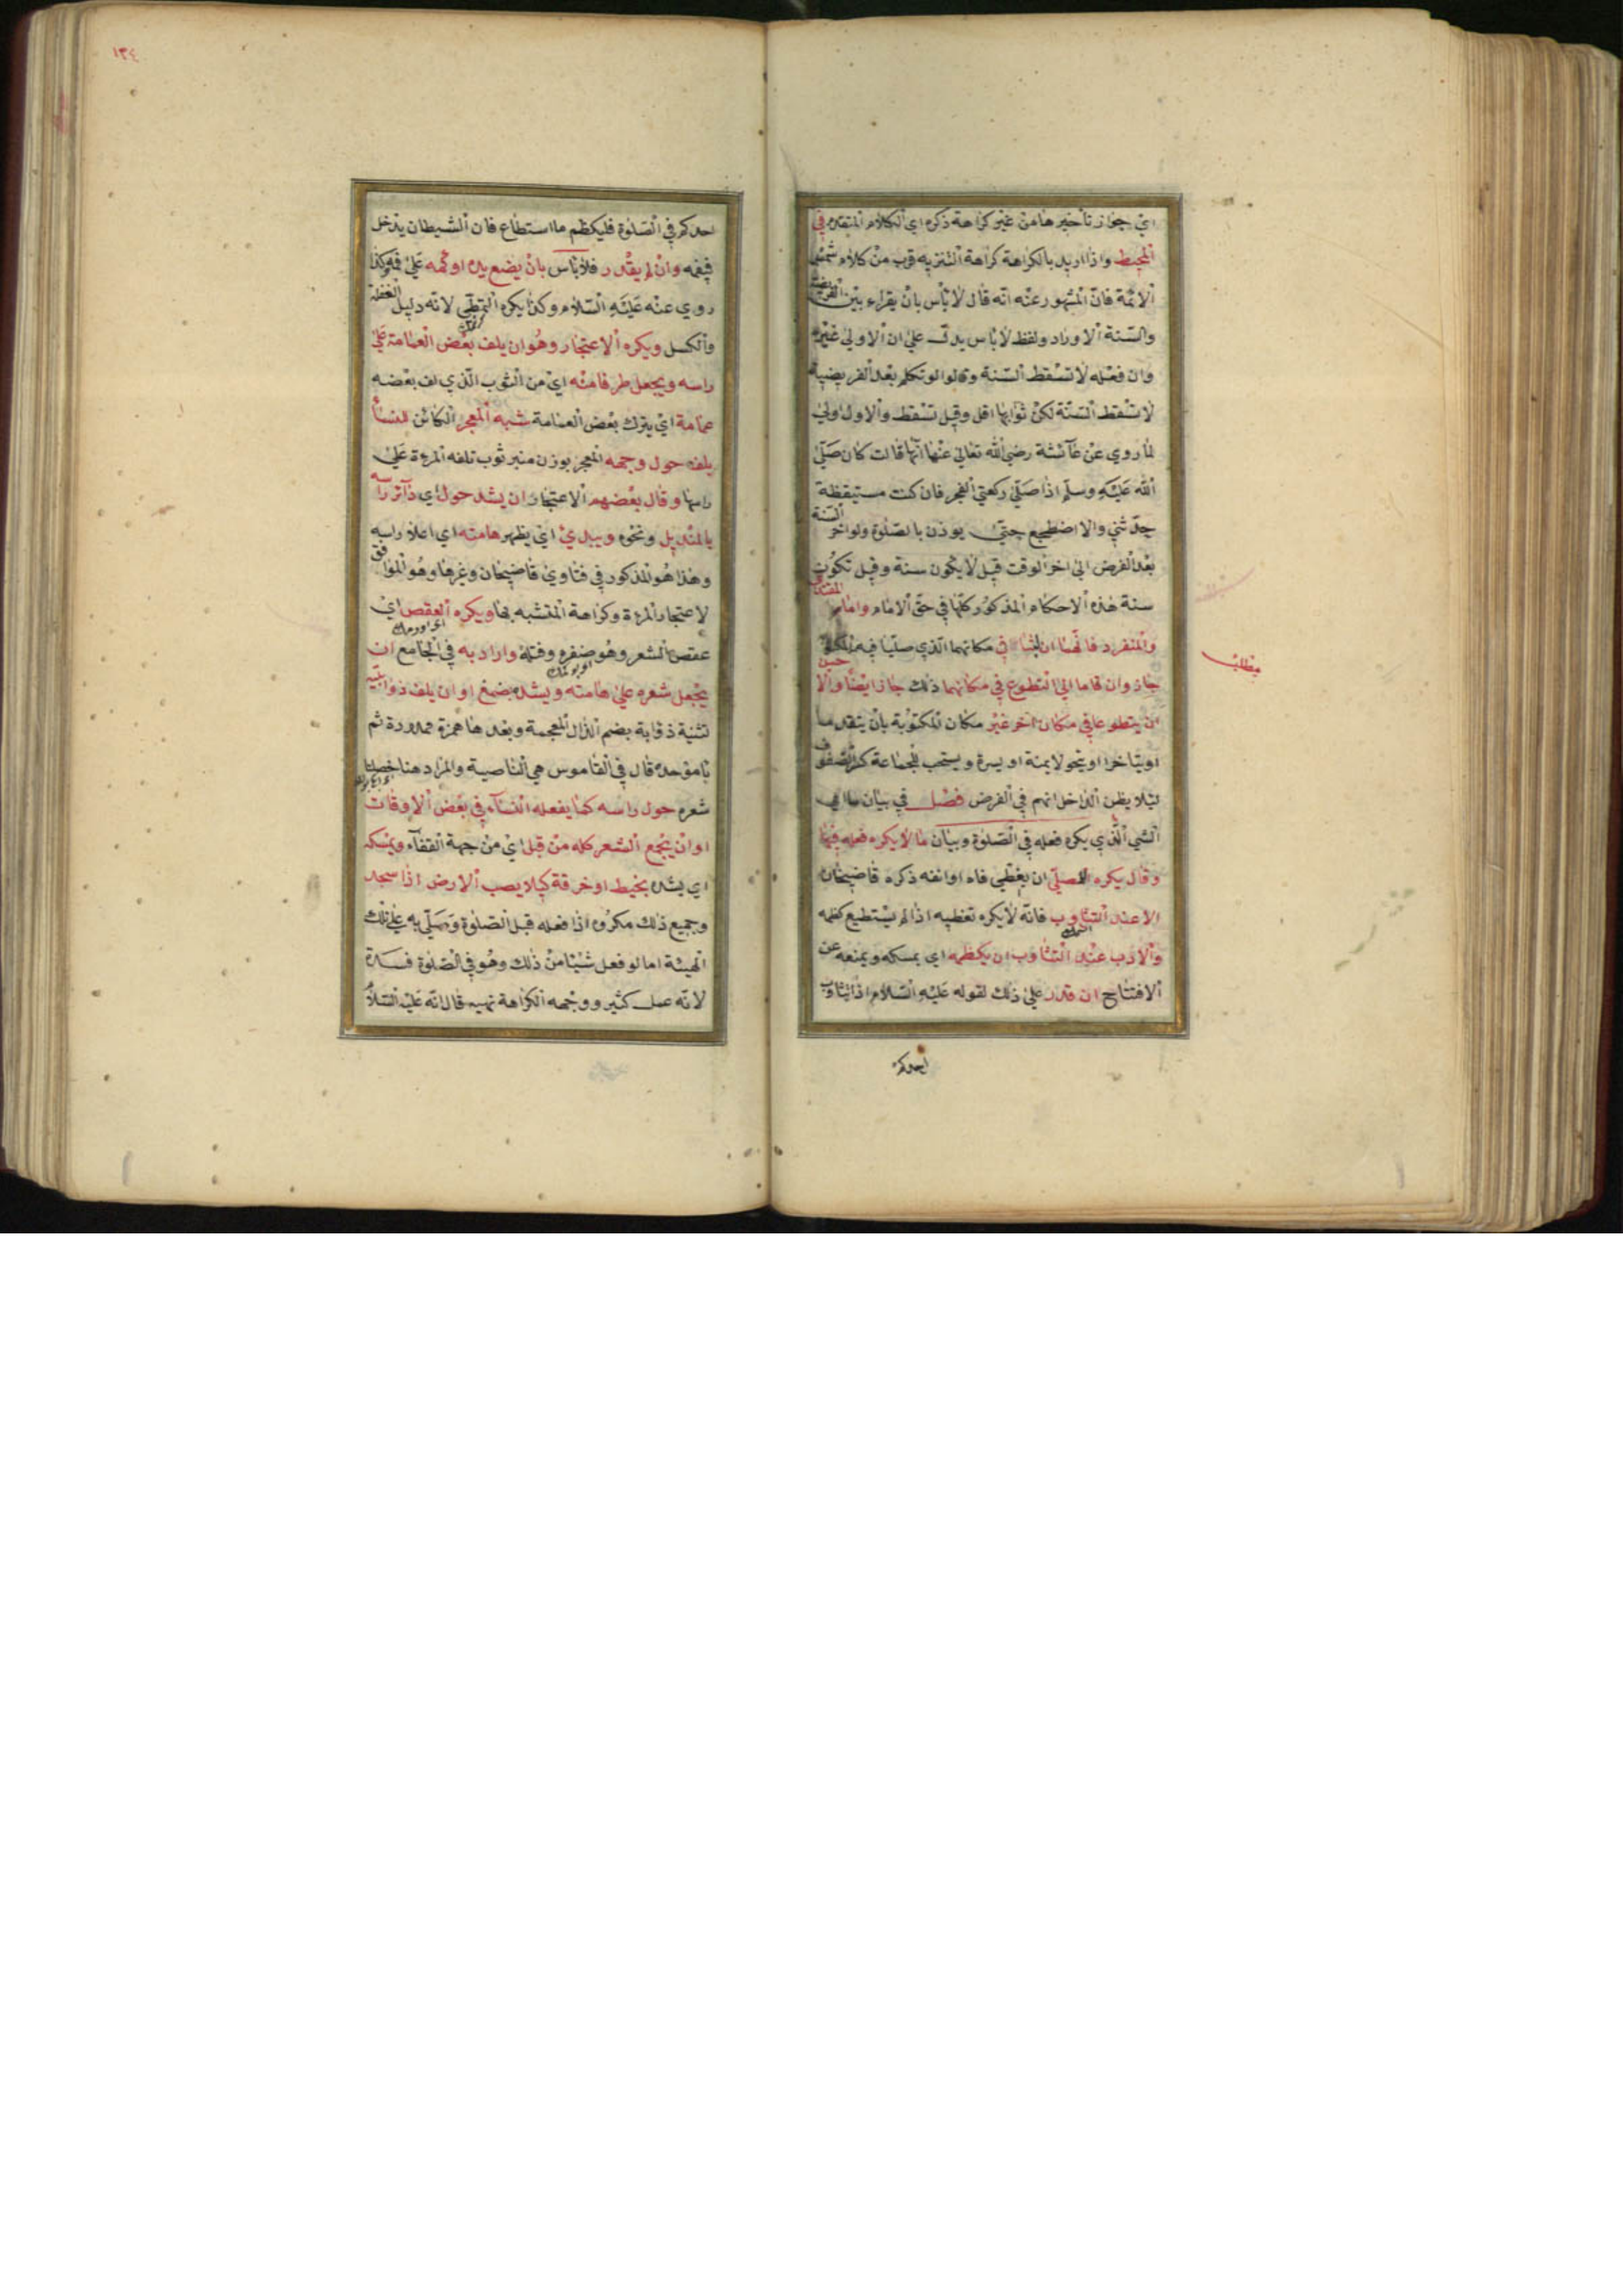 اي جواز تأخيرها من غير كراهة ذكره اي الكلام المتقدم في
المحيط واذا اريد بالكراهة كراهة التنزيه قرب من كلام شمس
الائمة فان المشهور عنه انه قال لا بأس بان يقراء بين الفريضة
والسنة الاوراد ولفظ لا بأس يدل على ان الاولى غيره
وان فعله لا تسقط السنة وقالوا لو تكلم بعد الفريضة
لا تسقط السنة لكن ثوابها اقل وقيل تسقط والاول اولى
لما روي عن عائشة رضي الله تعالى عنها انها قالت كان صلى
الله عليه وسلم اذا صلى ركعتي الفجر فان كنت مستيقظة
حدثني والا اضطجع حتى يوذن بالصلوة ولو اخر السنة
بعد الفرض الى اخر الوقت قيل لا يكون سنة وقيل تكون
سنة هذه الاحكام المذكور كلها في حق الامام واما المقتدي
والمنفرد فانهما ان لبثا في مكانهما الذي صليا فيه المكتوبة
جاز وان قاما الى التطوع في مكانهما ذلك جاز ايضا والاحسن
ان يتطوعا في مكان اخر غير مكان المكتوبة بان يتقدما
او يتاخرا او يتحولا يمنة او يسرة ويستحب للجماعة كسر الصفوف
ليلا يظن الداخل انهم في الفرض فصل في بيان
الشي الذي يكره فعله في الصلوة وبيان ما لا يكره فعله فيها
وقال يكره للمصلي ان يغطي فاه او انفه ذكره قاضيخان
الا عند التثاوب فانه لا يكره تغطيه اذا لم يستطيع كظمه
والادب عند التثاوب ان يكظمه اي يمسكه ويمنعه عن
الافتتاح ان قدر على ذلك لقوله عليه السلام اذا تثاوب
احدكم
مطلب
١٣٤
احدكم في الصلوة فليكظم ما استطاع فان الشيطان يدخل
فيفه وان لم يقدر فلا بأس بان يضع يده او كمه على فمه وكذا
روي عنه عليه السلام وكذا يكره التمطي لانه دليل الغفلة
والكسل ويكره الاعتجار وهو ان يلف بعض العمامة على
راسه ويجعل طرفا منه اي من الثوب الذي لف بعضه
عمامة اي يترك بعض العمامة شبه المعجر الكائن للنسأ
يلفه حول وجهه المعجر بوزن منبر ثوب تلفه المرءة على
راسها وقال بعضهم الاعتجار ان يشد حول اي دائر راسه
بالمنديل ونحوه ويبدي اي يظهر هامته اي اعلا راسه
وهذا هو المذكور في فتاوي قاضيخان وغرها وهو الموافق
لاعتجار المرءة وكراهة المتشبه بها ويكره العقص اي
عقص الشعر وهو ضفره وفتله واراد به في الجامع ان
يجعل شعره على هامته ويشده بصمغ او ان يلف ذوابتيه
تثنية ذؤابة بضم الذال المعجمة وبعدها همزة ممدودة ثم
با موحدة قال في القاموس هي الناصية والمراد هنا خصلتا
شعره حول راسه كما يفعله النسآء في بعض الاوقات
او ان يجمع الشعر كله من قبل اي من جهة القفاء ويمسكه
اي يشده بخيط او خرقة كيلا يصب الارض اذا سجد
وجميع ذلك مكروه اذا فعله قبل الصلوة وصلى به على تلك
الهيئة اما لو فعل شيئا من ذلك وهو في الصلوة فسدة
لانه عمل كثير ووجه الكراهة نهيه قال انه عليه السلام